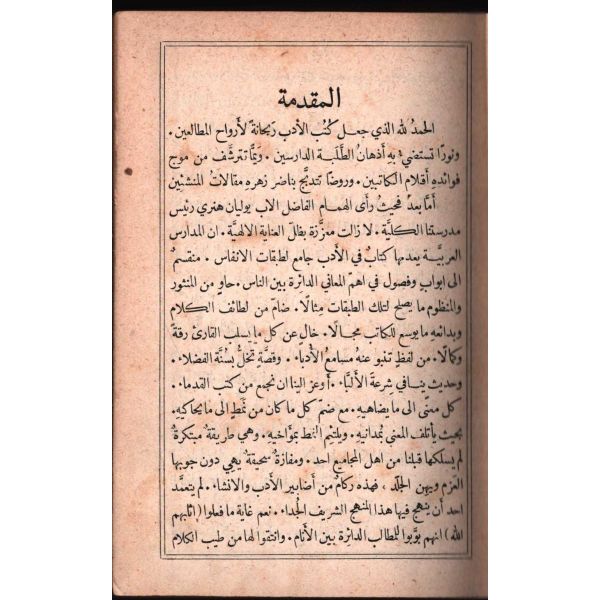 المقدمة
الحمدُ لله الذي جعل كتب الأدب ريحانة لأرواح المطالعين.
ونورًا تستضيء به أذهان الطَّلَبة الدارسين. ويمًّا تترشَّف من موج
فوائدهِ أقلام الكاتبين. وروضًا تتدبَّج بناضر زهرهِ مقالاتُ المنشئين
أمَّا بعد فحيث رأى الهمام الفاضل الاب يوليان هنري رئيس
مدرستنا الكليَّة. لا زالت معزَّزة بظل العناية الالهيَّة. ان المدارس
العربيَّة يعدمها كتابٌ في الأدب جامع لطبقات الانفاس. منقسمٌ
الى ابواب وفصول في اهم المعاني الدائرة بين الناس. حاوٍ من المنثور
والمنظوم ما يصلح لتلك الطبقات مثالًا. ضامّ من لطائف الكلام
وبدائعه ما يوسع للكاتب مجالًا. خالٍ عن كل ما يسلب القارئ رقةً
وكمالًا. من لفظٍ تنبو عنهُ مسامع الأدباء. وقصَّةٍ تخلُّ بسُنَّة الفضلاء.
وحديثٍ ينافي شرعة الألبَّاء. أوعز الينا ان نجمع من كتب القدماء.
كل معنًى الى ما يضاهيهِ. مع ضمّ كل ما كان من نمطٍ الى ما يحاكيهِ.
بحيث يأتلف المعنى بمُدانيهِ. ويلتئم النمط بمؤاخيهِ. وهي طريقةٌ مبتكرةٌ
لم يسلكها قبلنا من اهل المجاميع احد. ومفازةٌ سحيقةٌ يهي دون جوبها
العزم ويهن الجلَد. فهذه ركامٌ من أضابير الأدب والانشاء. لم يتعمَّد
احد أن ينهج فيها هذا المنهج الشريف الجُداء. نعم غاية ما فعلوا (اثابهم
الله) انهم بوَّبوا للمطالب الدائرة بين الأنام. وانتقوا لها من طيب الكلام